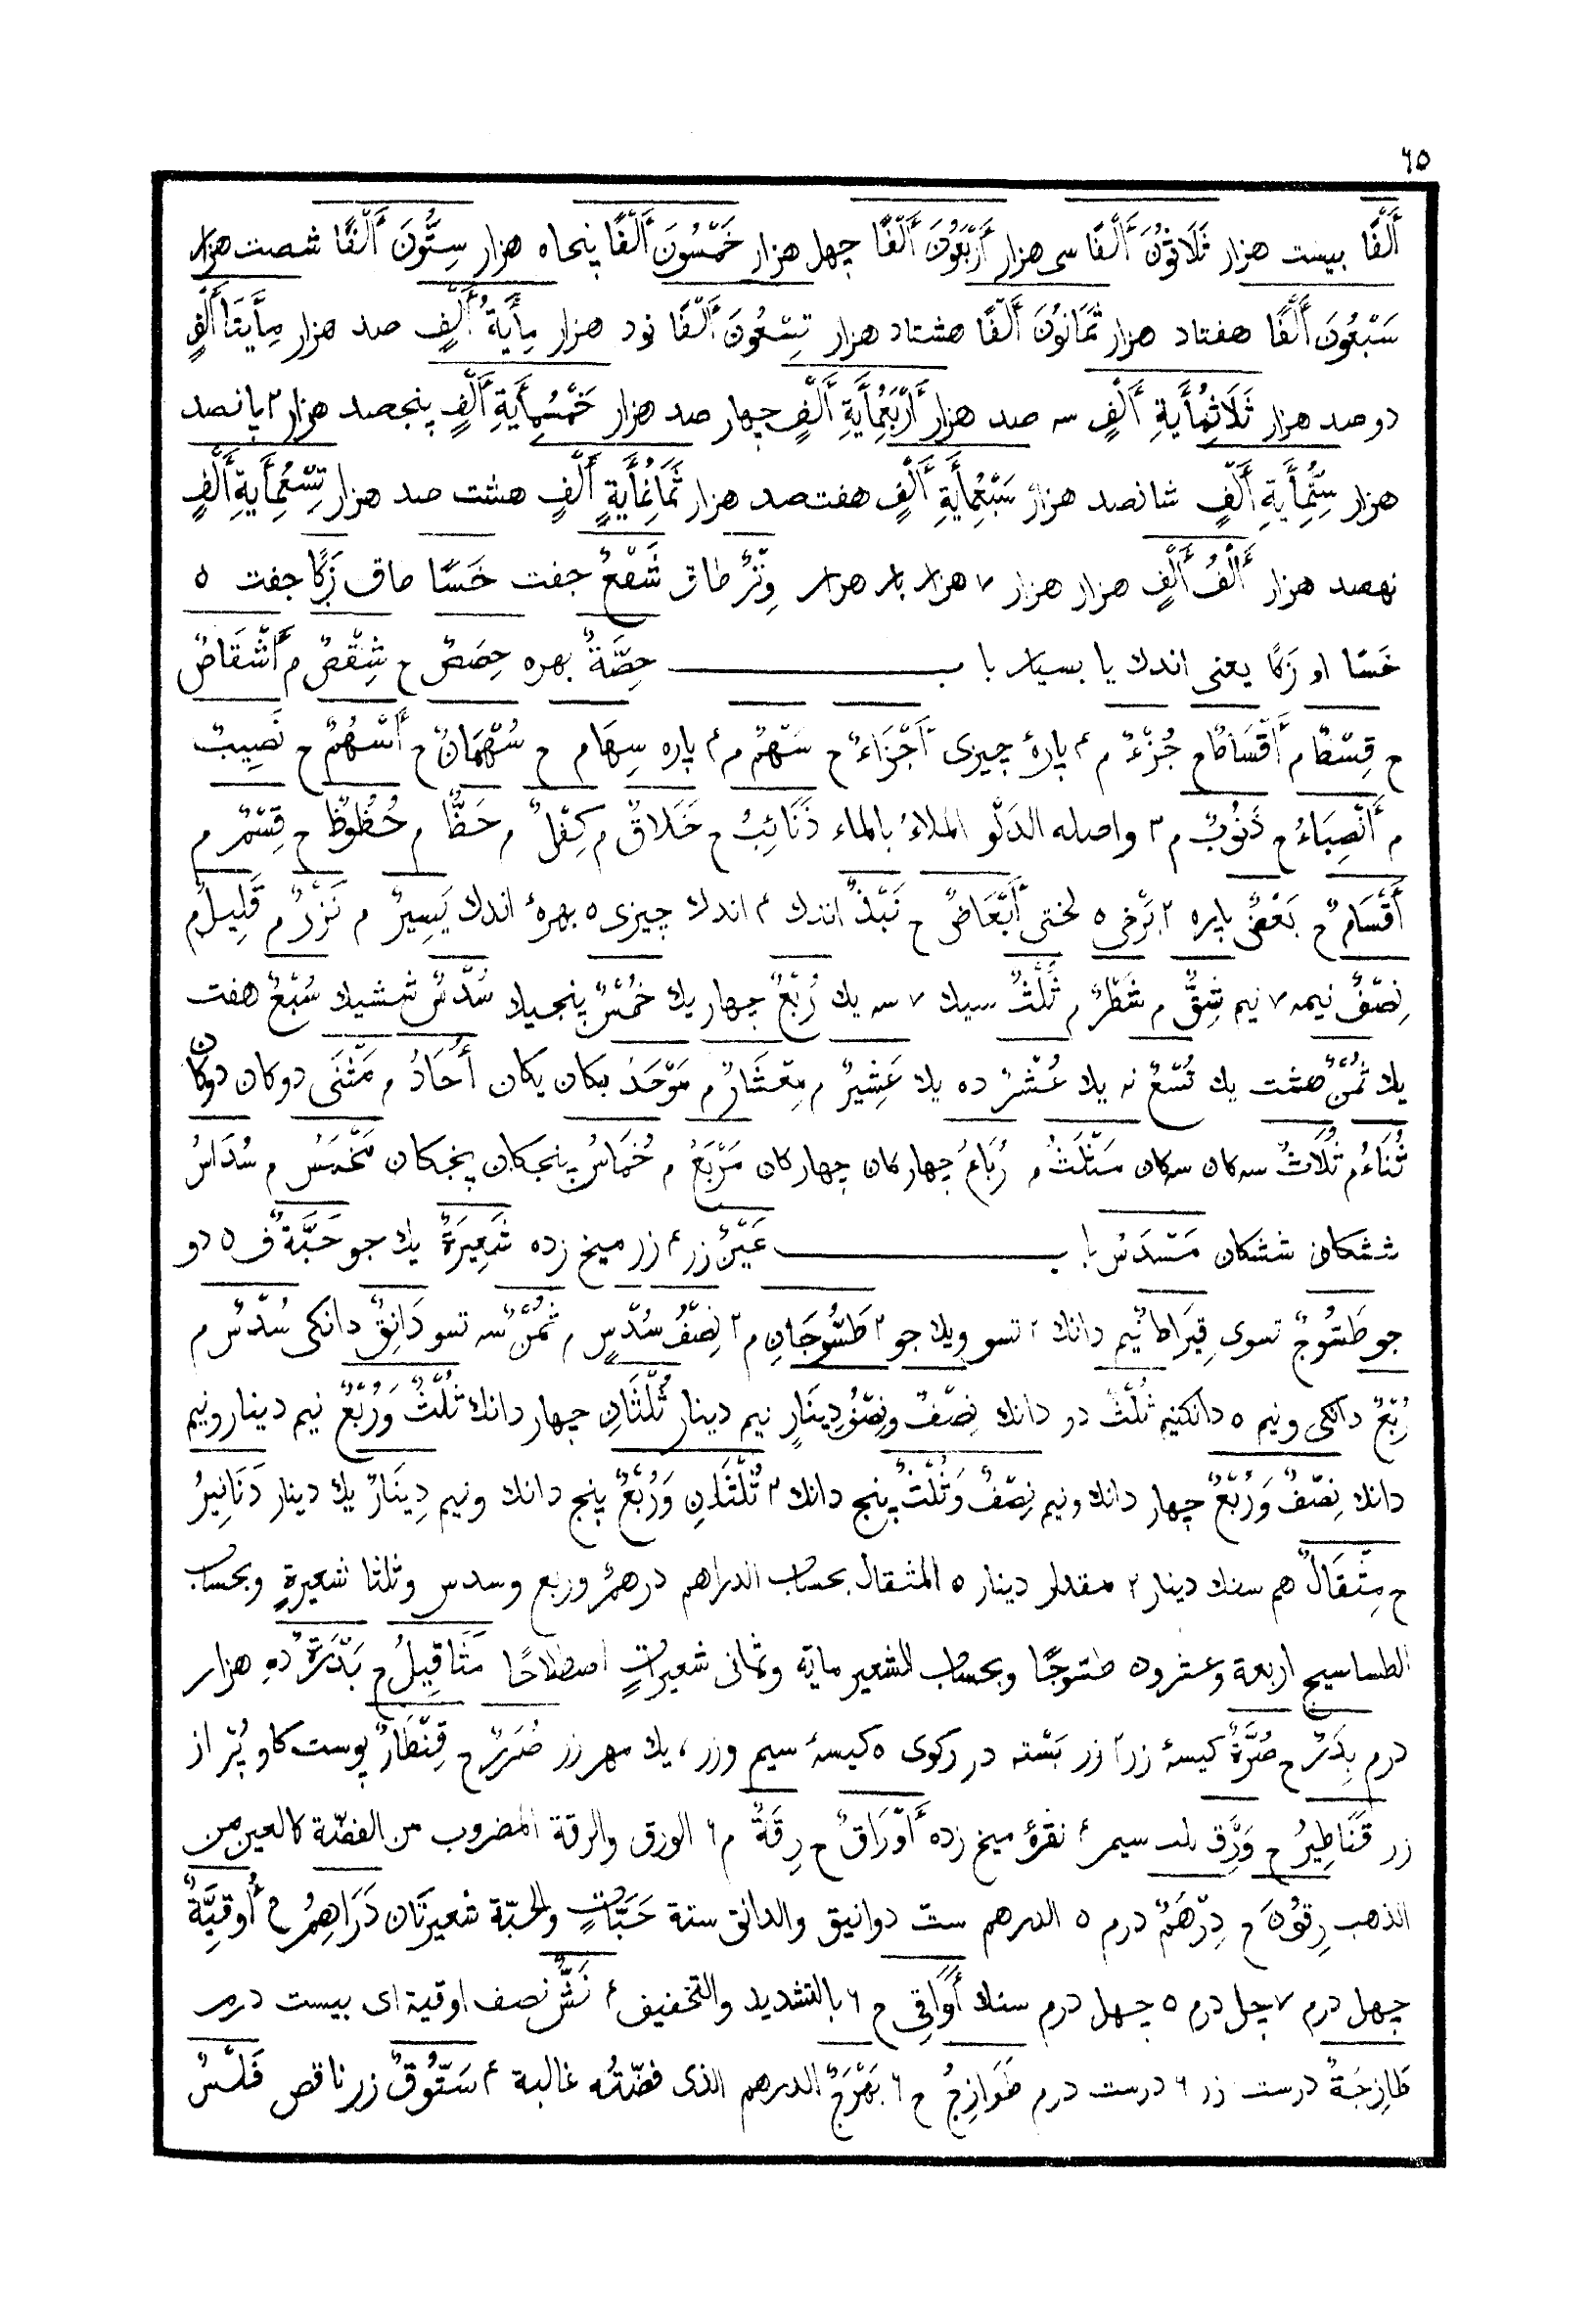 ٦٥
أَلْفًا بیست هزار ثَلَاثُونَ أَلْفًا سی هزار أَرْبَعُونَ أَلْفًا چهل هزار خَمْسُونَ أَلْفًا پنجاه هزار سِتُّونَ أَلْفًا شصت هزار
سَبْعُونَ أَلْفًا هفتاد هزار ثَمَانُونَ أَلْفًا هشتاد هزار تِسْعُونَ أَلْفًا نود هزار مِأَيَةُ أَلْفٍ صد هزار مِأَيَتَا أَلْفٍ
دو صد هزار ثَلَاثُمِأَيَةِ أَلْفٍ سه صد هزار أَرْبَعُمِأَيَةِ أَلْفٍ چهار صد هزار خَمْسُمِأَيَةِ أَلْفٍ پنجصد هزار ٢ پانصد
هزار سِتُّمِأَيَةِ أَلْفٍ شانصد هزار سَبْعُمِأَيَةِ أَلْفٍ هفتصد هزار ثَمَانُمِأَيَةٍ أَلْفٍ هشت صد هزار تِسْعُمِأَيَةِ أَلْفٍ
نهصد هزار أَلْفُ أَلْفٍ هزار هزار ٧ هزار بار هزار وِتْرٌ طاق شَفْعٌ جفت خَسًا طاق زَكًا جفت ٥
خَسًا او زَكًا یعنی اندك یا بسیار با ب حِصَّةٌ بهره حِصَصٌ ح شِقْصٌ م أَشْقَاصٌ
ح قِسْطٌ م أَقْسَاطٌ ح جُزْءٌ م ٤ پارهٔ چیزی أَجْزَاءٌ ح سَهْمٌ م ٤ پاره سِهَام ح سُهْمَانٌ ح أَسْهُمٌ ح نَصِيبٌ
م أَنْصِبَاءُ ح ذَنُوبٌ م ٣ واصله الدَلْو الملاءُ بالماء ذَنَائِبُ ح خَلَاقٌ م كِفْلٌ م حَظٌّ م حُظُوظٌ ح قِسْمٌ م
أَقْسَامٌ ح بَعْضٌ پاره ٢ بَرْخی ٥ لختی أَبْعَاضٌ ح نَبْذٌ اندك ٤ اندك چیزی ٥ بهرهٔ اندك يَسِيرٌ م نَزْرٌ م قَلِيلٌ م
نِصْفٌ نیمه ٧ نیم شِقٌّ م شَطْرٌ م ثُلْثٌ سیك ٧ سه یك رُبْعٌ چهار یك خُمْسٌ پنجیك سُدْسٌ ششیك سُبْعٌ هفت
یك ثُمْنٌ هشت یك تُسْعٌ نه یك عُشْرٌ ده یك عَشِيرٌ م مِعْشَارٌ م مَوْحَدَ یکان یکان أُحَادُ م مَثْنَى دوکان دوکان
ثُنَاءُ م ثُلَاثُ سه کان سه کان مَثْلَثُ م رُبَاعُ چهارکان چهارکان مَرْبَعُ م خُمَاسُ پنجکان پنجکان مَخْمَسُ م سُدَاسُ
ششکان ششکان مَسْدَسُ با ب عَيْنٌ زر ٤ زر میخ زده شَعِيرَةٌ یك جو حَبَّةٌ ف ٥ دو
جو طَسُّوجٌ تسوی قِيرَاطٌ نیم دانك ٢ تسو ویك جو ٢ طَسُّوجَانِ م ٢ نِصْفُ سُدْسٍ م ثُمْنٌ سه تسو دَانِقٌ دانکی سُدْسٌ م
رُبْعٌ دانکی ونیم ٥ دانکنیم ثُلْثٌ دو دانك نِصْفٌ ونِصْفُ دِينَارٍ نیم دینار ثُلْثَانِ چهار دانك ثُلْثٌ وَرُبْعٌ نیم دینار ونیم
دانك نِصْفٌ وَرُبْعٌ چهار دانك ونیم نِصْفٌ وَثُلْثٌ پنج دانك ٣ ثُلْثَانِ وَرُبْعٌ پنج دانك ونیم دِينَارٌ یك دینار دَنَانِيرُ
ح مِثْقَالٌ هم سنك دینار ٢ مقدار دینار ٥ المثقال بحساب الدراهم درهمٌ وربع وسدس وثلثا شعيرةٍ وبحساب
الطساسيج اربعة وعشرون طسّوجًا وبحساب الشعير ماية وثمانى شعيراتٍ اصطلاحًا مَثَاقِيلُ ح بَدْرَةٌ ده هزار
درم بِدَرٌ ح صُرَّةٌ کیسهٔ زر ٢ زر بَسْته در رکوی ٥ کیسهٔ سیم وزر، یك مهر زر صُرَرٌ ح قِنْطَارٌ پوست کاو پُر از
زر قَنَاطِيرُ ح وَرِقٌ سیم ٤ نقرهٔ میخ زده أَوْرَاقٌ ح رِقَةٌ م ٦ الورق والرقة المضروب من الفضّة كالعين من
الذهب رِقُونَ ح دِرْهَمٌ درم ٥ الدرهم ستّ دوانيق والدانق ستة حَبَّاتٍ والحبّة شعيرتان دَرَاهِمُ ح أُوقِيَّةٌ
چهل درم ٧ چل درم ٥ چهل درم سنك أَوَاقِي ح ٦ بالتشديد والتخفيف ٤ نَشٌّ نصف اوقية ای بیست درم
طَازِجَةٌ درست زر ٦ درست درم طَوَازِجُ ح ٦ بَهْرَجٌ الدرهم الذی فضّتُه غالبة ٤ سَتُّوقٌ زر ناقص فَلْسٌ